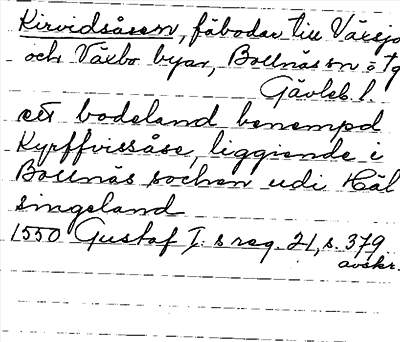 Kirvidsåsen, fäbodar till Växsjö
och Växbo byar, Bollnäs sn o tg
Gävleb. l.
ett bodeland benempd
Kyrffvissåse, liggiende i
Bollnäs sochen udi Häl
singeland
1550 Gustaf I:s reg. 21, s. 379
avskr.